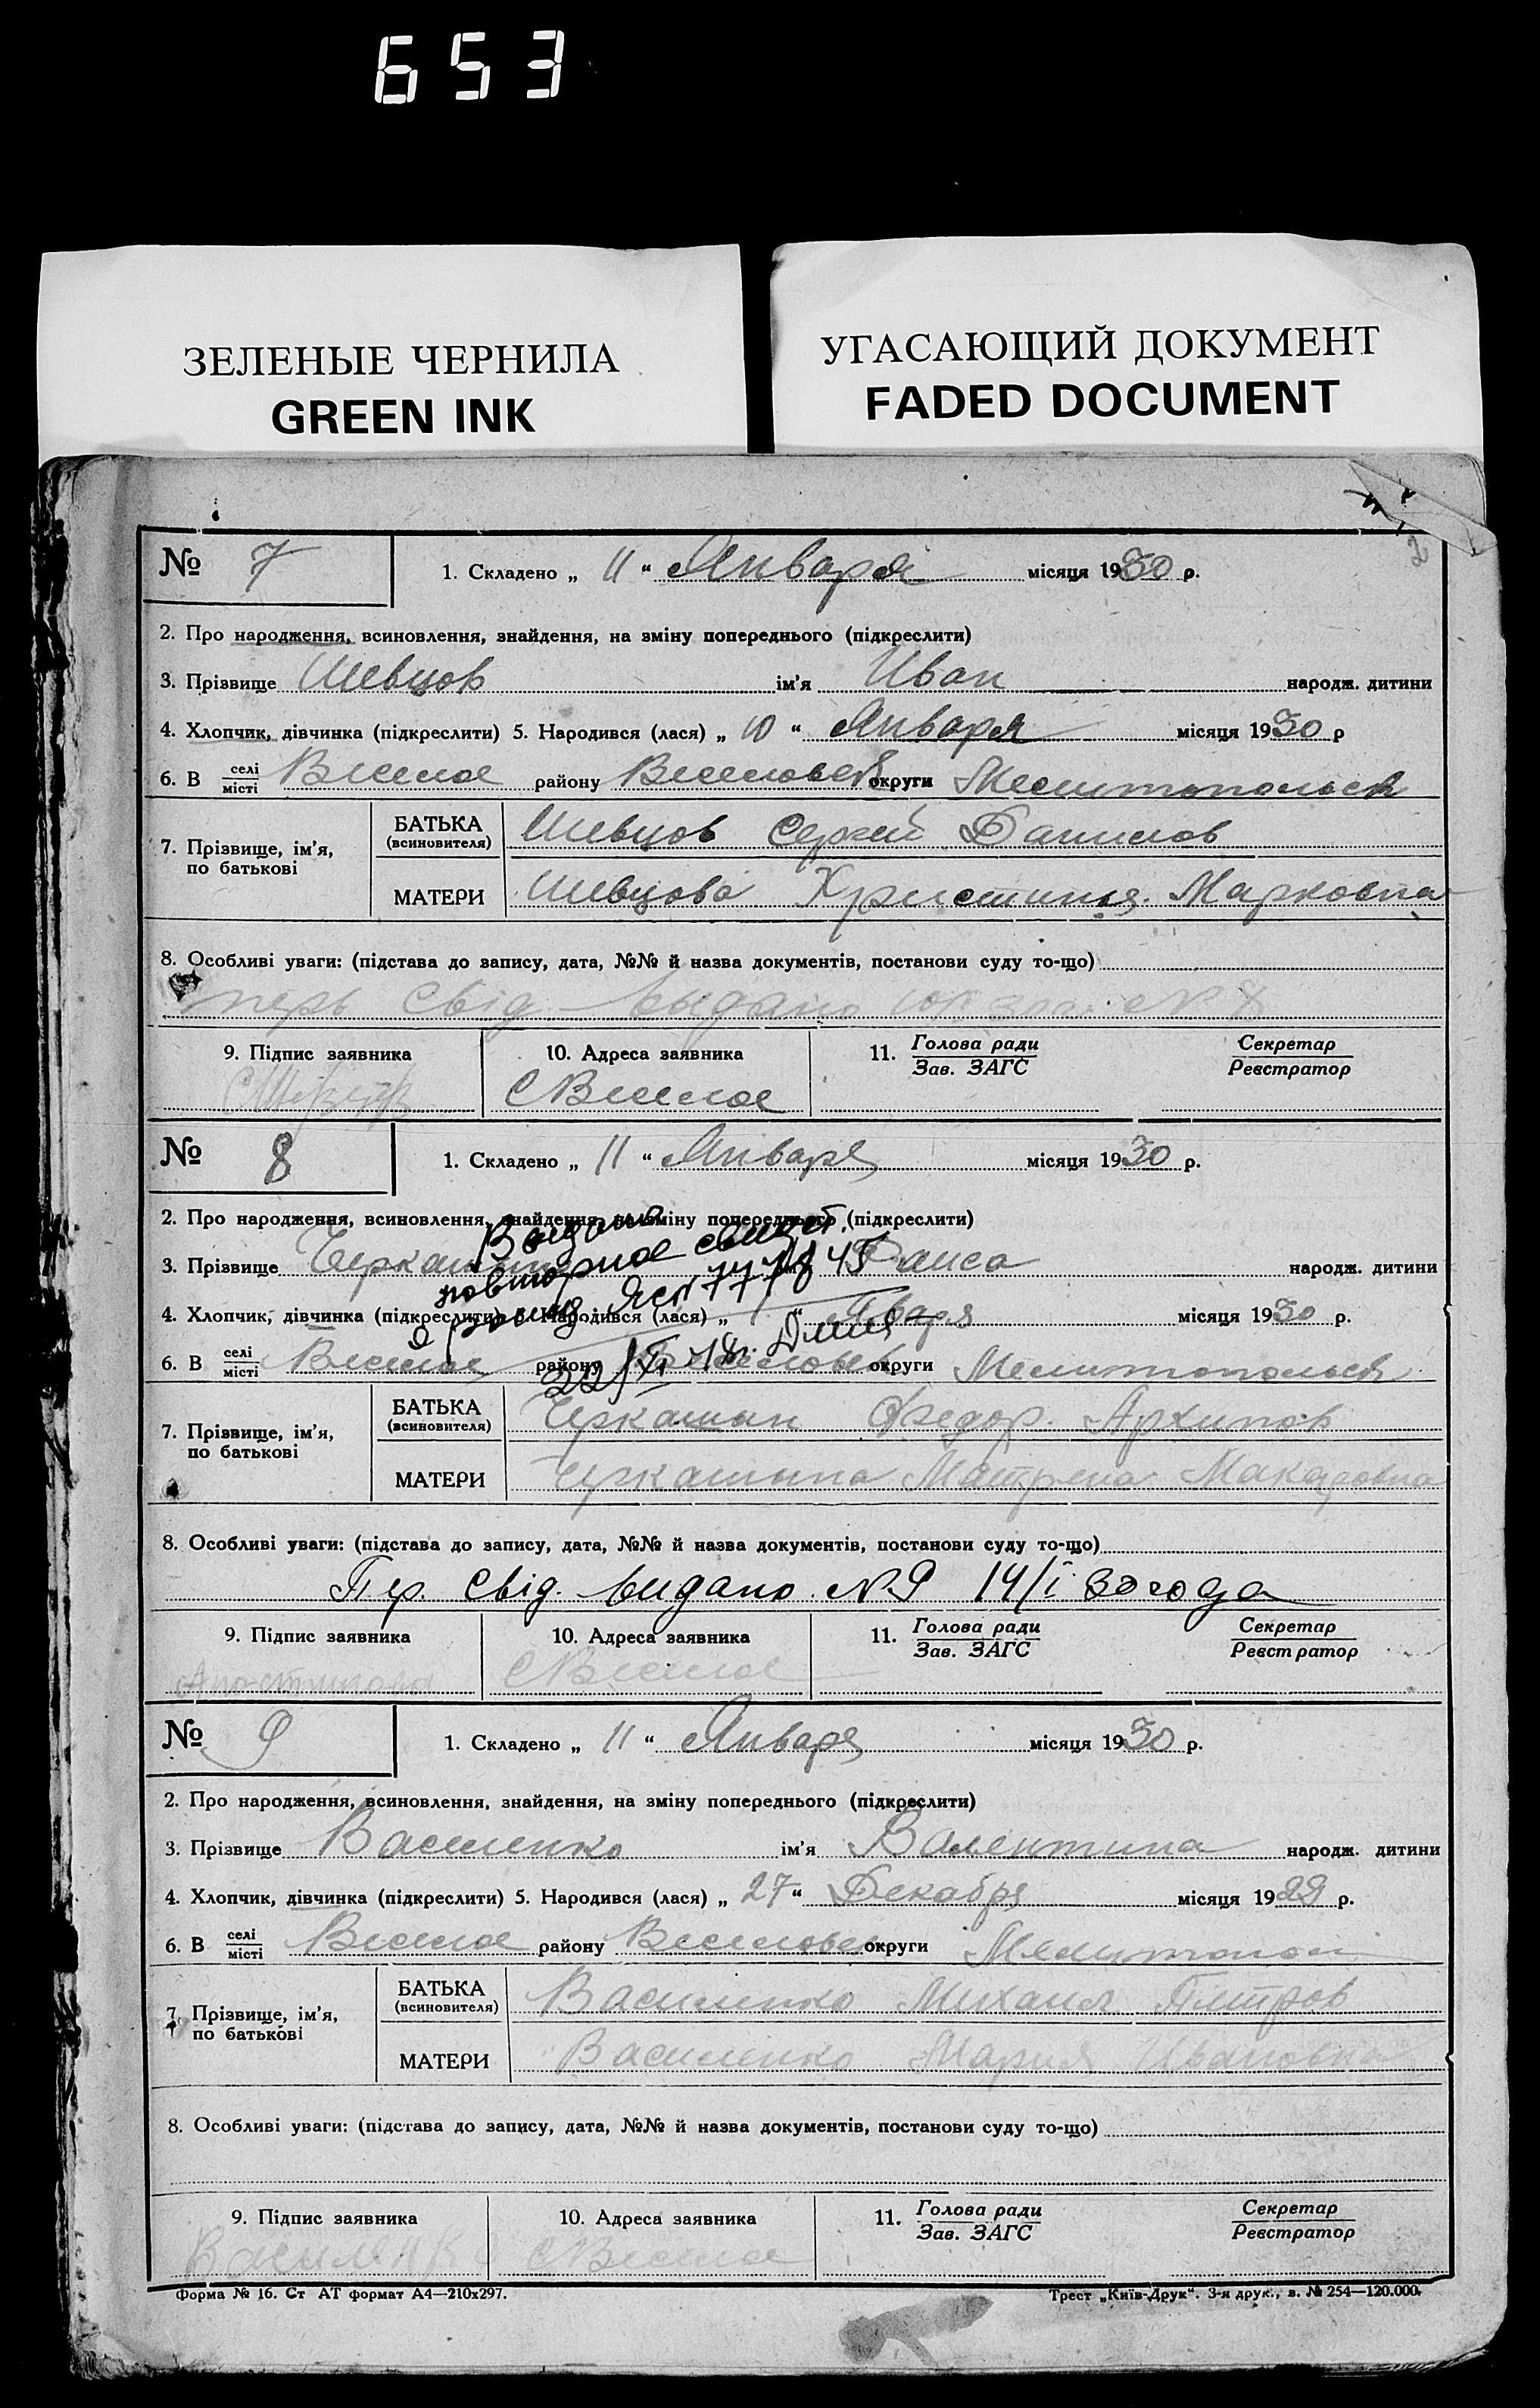 653
ЗЕЛЕНЫЕ ЧЕРНИЛА
GREEN INK
УГАСАЮЩИЙ ДОКУМЕНТ
FADED DOCUMENT
2
№ 7
1. Складено „ 11 “ Января місяця 1930 р.
2. Про народження, всиновлення, знайдення, на зміну попереднього (підкреслити)
3. Прізвище Шевцов ім'я Иван народж. дитини
4. Хлопчик, дівчинка (підкреслити) 5. Народився (лася) „ 10 “ Января місяця 1930 р
6. В селі/місті Веселое району Веселовск округи Мелитопольск
7. Прізвище, ім'я, по батькові
БАТЬКА (всиновителя) Шевцов Сергей Данилов
МАТЕРИ Шевцова Христинья Марковна
8. Особливі уваги: (підстава до запису, дата, №№ й назва документів, постанови суду то-що)
перв свід - выдано № 8
9. Підпис заявника
10. Адреса заявника
С Веселое
11. Голова ради/Зав. ЗАГС
Секретар/Реєстратор
№ 8
1. Складено „ 11 “ Января місяця 1930 р.
2. Про народження, всиновлення, знайдення, на зміну попереднього (підкреслити)
Выдано
повторное свидет.
3. Прізвище Черкашин ім'я Раиса народж. дитини
о рожд. ЯС №777845
4. Хлопчик, дівчинка (підкреслити) 5. Народився (лася) „ “ Января місяця 1930 р.
6. В селі/місті Веселое району Веселовск округи Мелитопольск
22/XI
7. Прізвище, ім'я, по батькові
БАТЬКА (всиновителя) Черкашин Федор Архипов
МАТЕРИ Черкашина Матрена Макаровна
8. Особливі уваги: (підстава до запису, дата, №№ й назва документів, постанови суду то-що)
Пер. свід. видано № 9 14/I 30 года
9. Підпис заявника
10. Адреса заявника
С Веселое
11. Голова ради/Зав. ЗАГС
Секретар/Реєстратор
№ 9
1. Складено „ 11 “ Января місяця 1930 р.
2. Про народження, всиновлення, знайдення, на зміну попереднього (підкреслити)
3. Прізвище Василенко ім'я Валентина народж. дитини
4. Хлопчик, дівчинка (підкреслити) 5. Народився (лася) „ 27 “ Декабря місяця 1929 р.
6. В селі/місті Веселое району Веселовск округи Мелитопол
7. Прізвище, ім'я, по батькові
БАТЬКА (всиновителя) Василенко Михаил Петров
МАТЕРИ Василенко Мария Ивановна
8. Особливі уваги: (підстава до запису, дата, №№ й назва документів, постанови суду то-що)
9. Підпис заявника
Василенко
10. Адреса заявника
С Веселое
11. Голова ради/Зав. ЗАГС
Секретар/Реєстратор
Форма № 16. Ст АТ формат А4—210х297.
Трест „Київ-Друк“. 3-я друк., з. № 254—120.000.